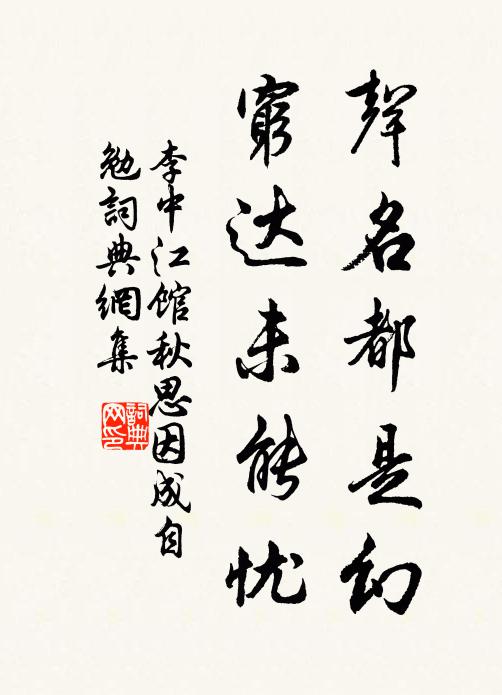 聲名都是幻
窮达未能忧
李中江馆秋思因成自
勉詞典網集
詞典
网印